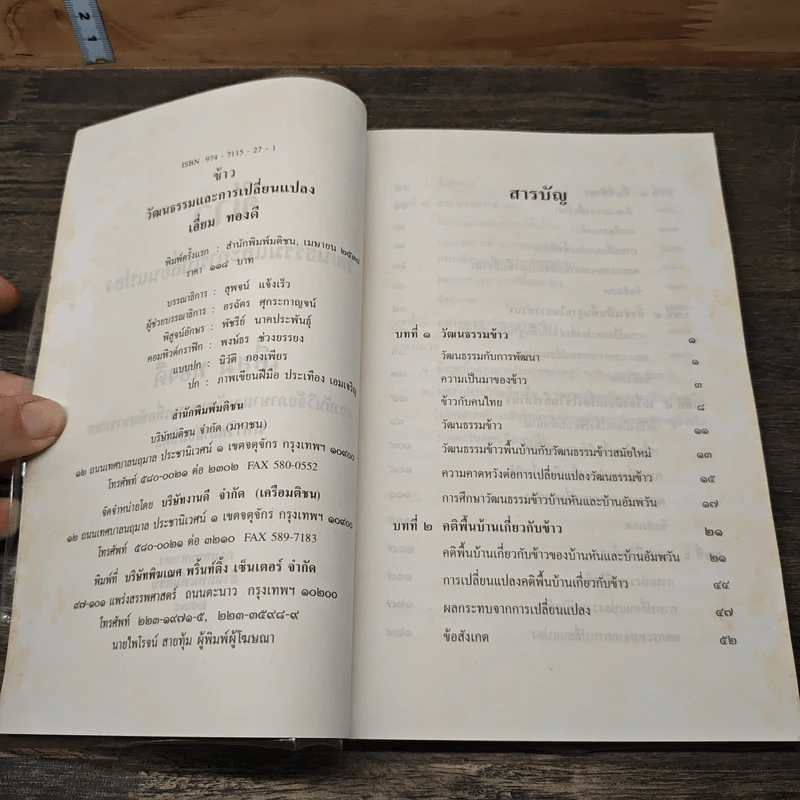 2 1
ISBN 974 - 7115 - 27 - 1
ข้าว
วัฒนธรรมและการเปลี่ยนแปลง
เอี่ยม ทองดี
พิมพ์ครั้งแรก : สำนักพิมพ์มติชน, เมษายน ๒๕๓๘
ราคา ๑๑๘ บาท
บรรณาธิการ : สุพจน์ แจ้งเร็ว
ผู้ช่วยบรรณาธิการ : อรฉัตร ศุกระกาญจน์
พิสูจน์อักษร : พัชรีย์ นาคประพันธุ์
คอมพิวต์กราฟิก : พงษ์ธร ช่วงยรรยง
แบบปก : นิวัติ กองเพียร
ปก : ภาพเขียนฝีมือ ประเทือง เอมเจริญ
สำนักพิมพ์มติชน
บริษัทมติชน จำกัด (มหาชน)
๑๒ ถนนเทศบาลนฤมาล ประชานิเวศน์ ๑ เขตจตุจักร กรุงเทพฯ ๑๐๙๐๐
โทรศัพท์ ๕๘๐-๐๐๒๑ ต่อ ๒๓๐๒ FAX 580-0552
จัดจำหน่ายโดย บริษัทงานดี จำกัด (เครือมติชน)
๑๒ ถนนเทศบาลนฤมาล ประชานิเวศน์ ๑ เขตจตุจักร กรุงเทพฯ ๑๐๙๐๐
โทรศัพท์ ๕๘๐-๐๐๒๑ ต่อ ๓๒๑๐ FAX 589-7183
พิมพ์ที่ บริษัทพิฆเณศ พริ้นท์ติ้ง เซ็นเตอร์ จำกัด
๙๗-๑๐๑ แพร่งสรรพศาสตร์ ถนนตะนาว กรุงเทพฯ ๑๐๒๐๐
โทรศัพท์ ๒๒๓-๑๙๗๑-๕, ๒๒๓-๓๕๙๘-๙
นายไพโรจน์ สายทุ้ม ผู้พิมพ์ผู้โฆษณา
สารบัญ
บทที่ ๑ วัฒนธรรมข้าว ๑
วัฒนธรรมกับการพัฒนา ๑
ความเป็นมาของข้าว ๓
ข้าวกับคนไทย ๘
วัฒนธรรมข้าว ๑๑
วัฒนธรรมข้าวพื้นบ้านกับวัฒนธรรมข้าวสมัยใหม่ ๑๓
ความคาดหวังต่อการเปลี่ยนแปลงวัฒนธรรมข้าว ๑๕
การศึกษาวัฒนธรรมข้าวบ้านหันและบ้านอัมพวัน ๑๗
บทที่ ๒ คติพื้นบ้านเกี่ยวกับข้าว ๒๑
คติพื้นบ้านเกี่ยวกับข้าวของบ้านหันและบ้านอัมพวัน ๒๑
การเปลี่ยนแปลงคติพื้นบ้านเกี่ยวกับข้าว ๔๔
ผลกระทบจากการเปลี่ยนแปลง ๔๗
ข้อสังเกต ๕๒